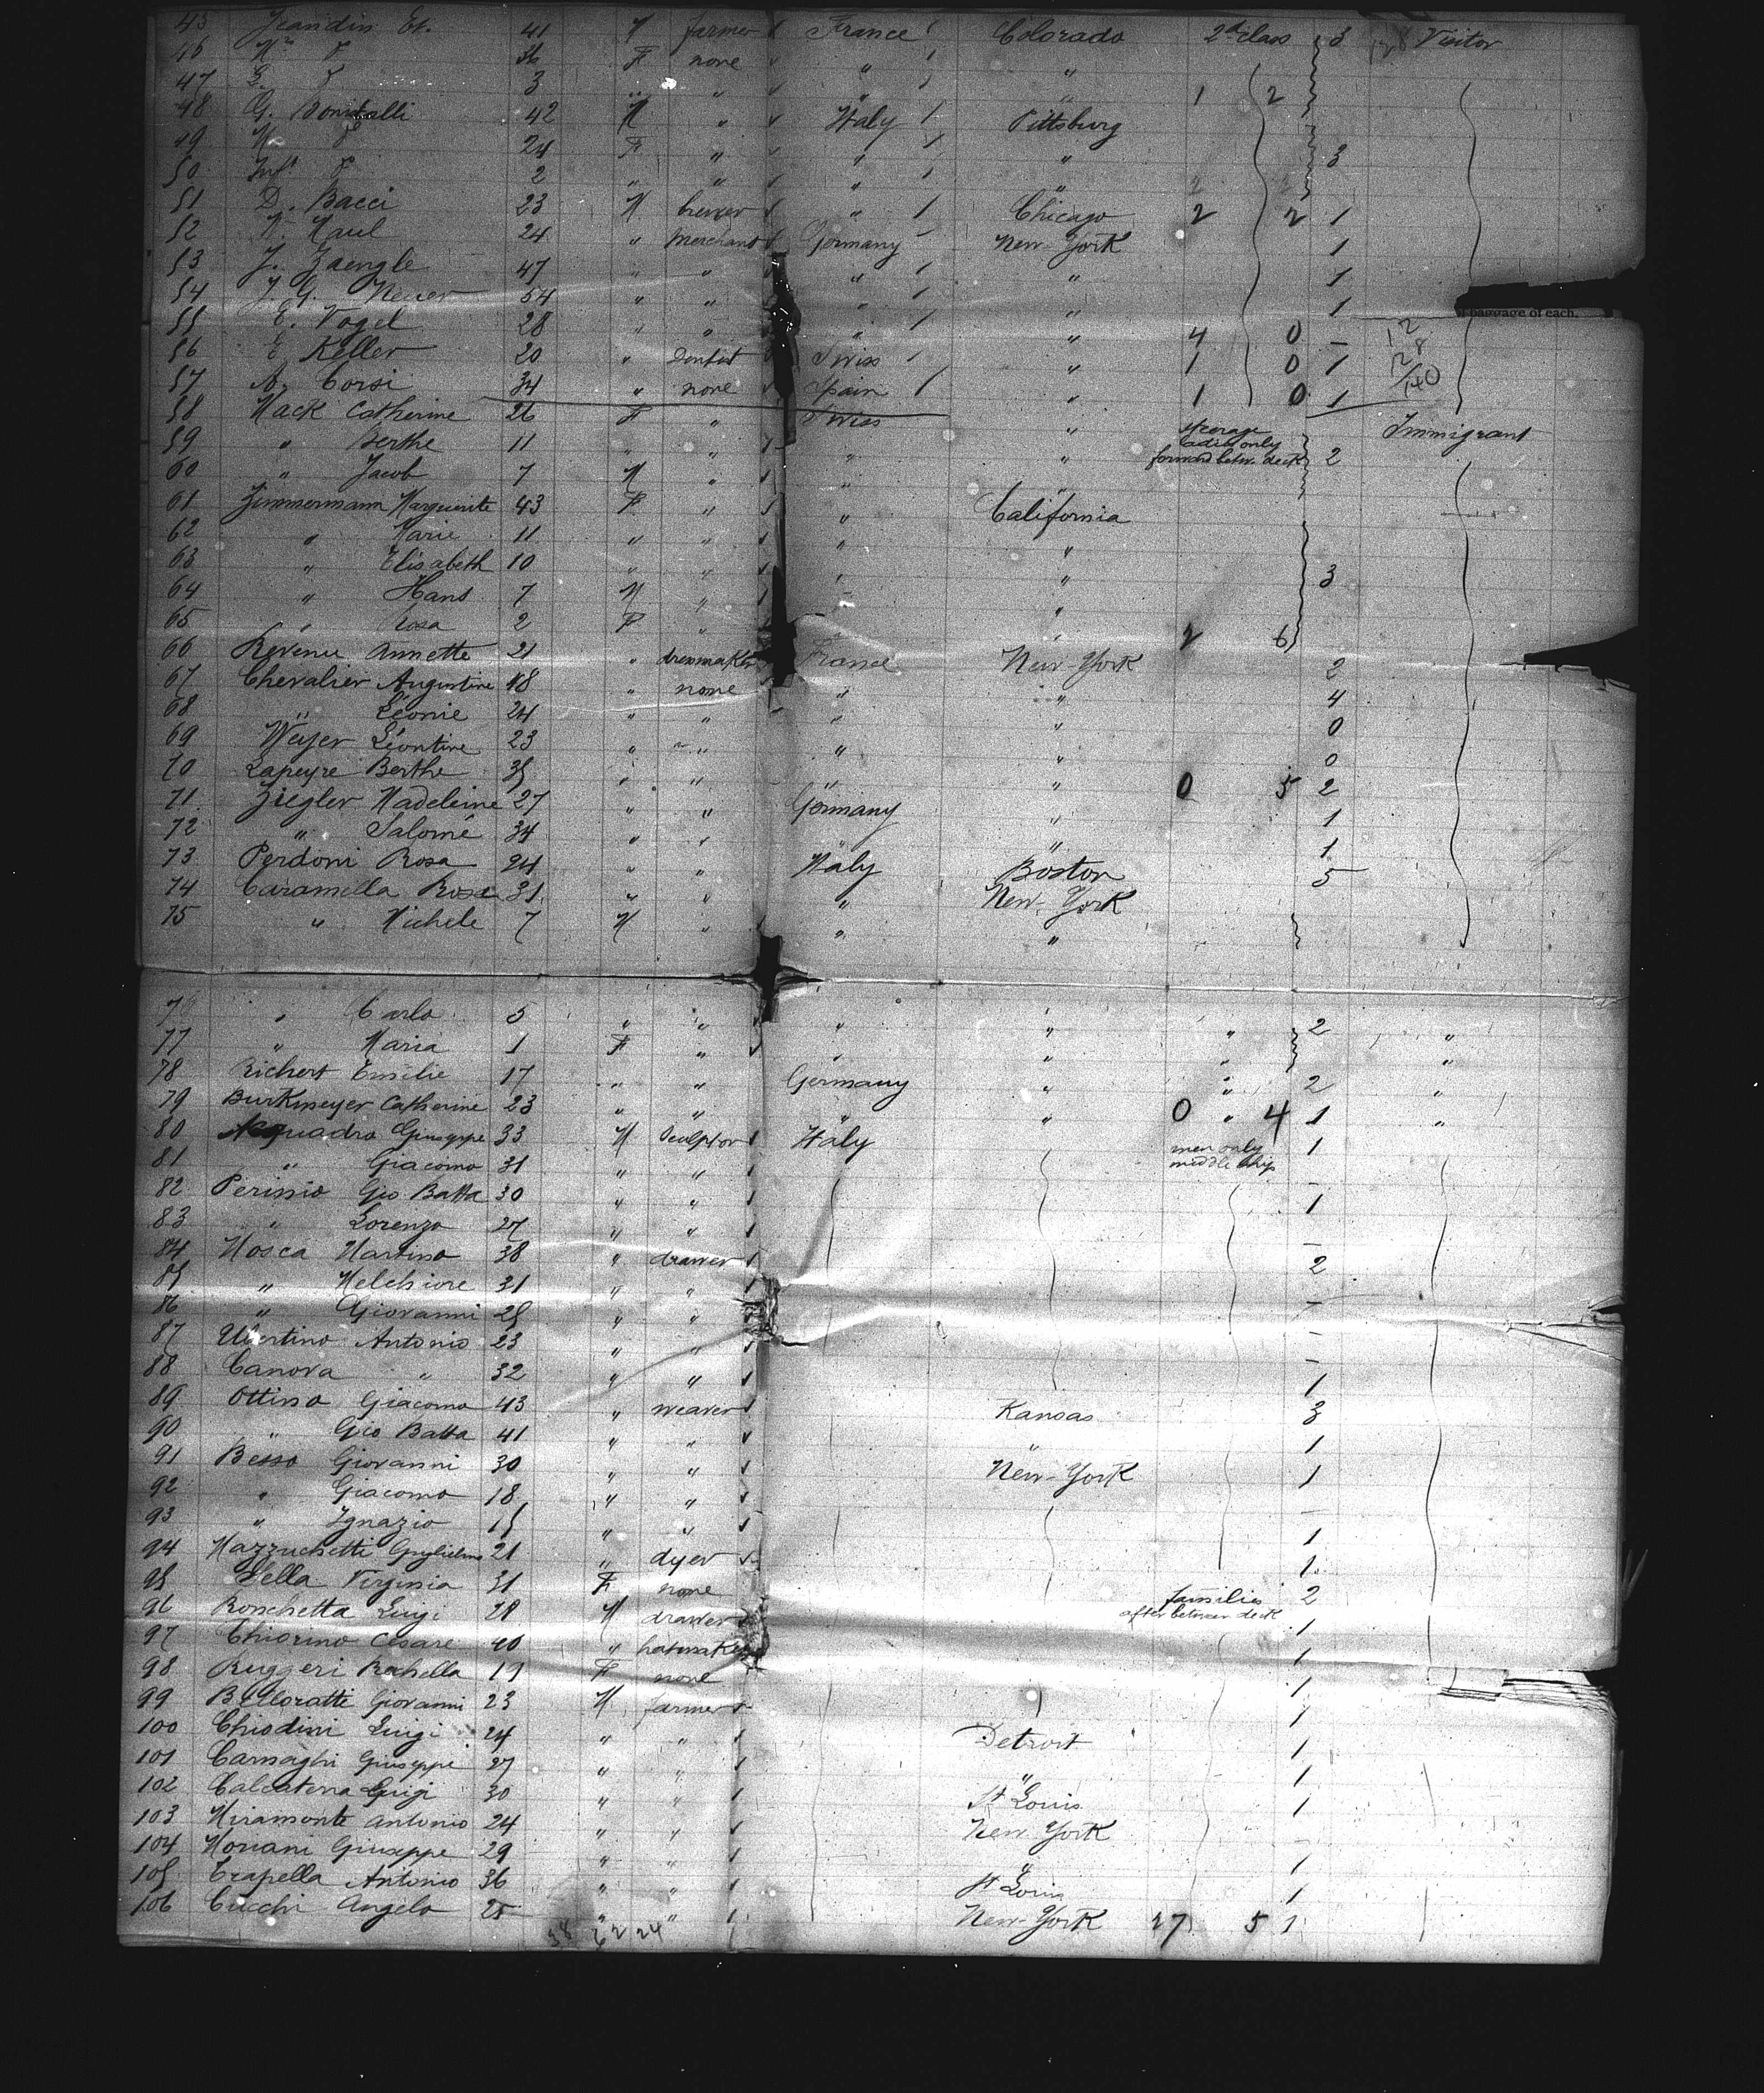 45 Jeandin Et. 41 M farmer France Colorado 2d class 3 Visitor
46 36 F none " "
47 3 " " " " 1 2
48 G. 42 M " Italy Pittsburg
49 24 F " " " 3
50 Inf 2 " " " "
51 D. Bacci 23 M brewer " Chicago 2 2 1
52 24 " Merchant Germany New-York 1
53 J. Zaengle 47 " " " " 1
54 J. G. 54 " " " " 1
baggage of each.
55 E. Vogel 28 " " " " 4 0 -
56 E. Keller 20 " Dentist Swiss " 1 0 1
57 A. Corsi 34 " none Spain " 1 0 1
58 Mack Catherine 26 F " Swiss " steerage Immigrant
59 " Berthe 11 " " " " ladies only
60 " Jacob 7 M " " " forward betw. deck 2
61 Zimmermann Marguerite 43 F " " California
62 " Marie 11 " " " "
63 " Elisabeth 10 " " " " 3
64 " Hans 7 M " " "
65 " Rosa 2 F " " " 2 6
66 Revenu Annette 21 " dressmaker France New-York 2
67 Chevalier Augustine 48 " none " " 4
68 " Léonie 24 " " " " 0
69 Weyer Léontine 23 " " " " 0
70 Lapeyre Berthe 35 " " " " 0 5 2
71 Ziegler Madeleine 27 " " Germany " 1
72 " Salomé 34 " " " " 1
73 Perdoni Rosa 24 " " Italy Boston 5
74 Caramella Rosa 31 " " " New-York
75 " Michele 7 M " " "
76 " Carlo 5 " " " " " 2 "
77 " Maria 1 F " " " " "
78 Richert Emilie 17 " " Germany " " 2 "
79 Burkmeyer Catherine 23 " " " " 0 " 4 1 "
80 Acquadro Giuseppe 33 M Sculptor Italy men only 1
81 " Giacomo 31 " " middle ship
82 Perinio Gio Batta 30 " " 1
83 " Lorenzo 27 " " -
84 Mosca Martino 38 " drawer 2
85 " Melchiore 31 " " -
86 " Giovanni 25 " " -
87 Ubertino Antonio 23 " " -
88 Canova " 32 " " 1
89 Ottino Giacomo 43 " weaver Kansas 3
90 " Gio Batta 41 " " " 1
91 Besso Giovanni 30 " " New-York 1
92 " Giacomo 18 " " -
93 " Ignazio 15 " " 1
94 Mazzuchetti Guglielmo 21 " dyer 1
95 Sella Virginia 31 F none families 2
96 Ronchetta Luigi 28 M drawer after between deck 1
97 Chiorino Cesare 40 " hatmaker 1
98 Ruggeri Rachella 19 F none 1
99 Belloratti Giovanni 23 M farmer 1
100 Chiodini Luigi 24 " " Detroit 1
101 Carnaghi Giuseppe 27 " " " 1
102 Calcaterra Luigi 30 " " St Louis 1
103 Miramonte Antonio 24 " " New York -
104 Moriani Giuseppe 29 " " " 1
105 Crapella Antonio 36 " " St Louis 1
106 Cucchi Angelo 25 " " New-York 27 5 1
38 62 24